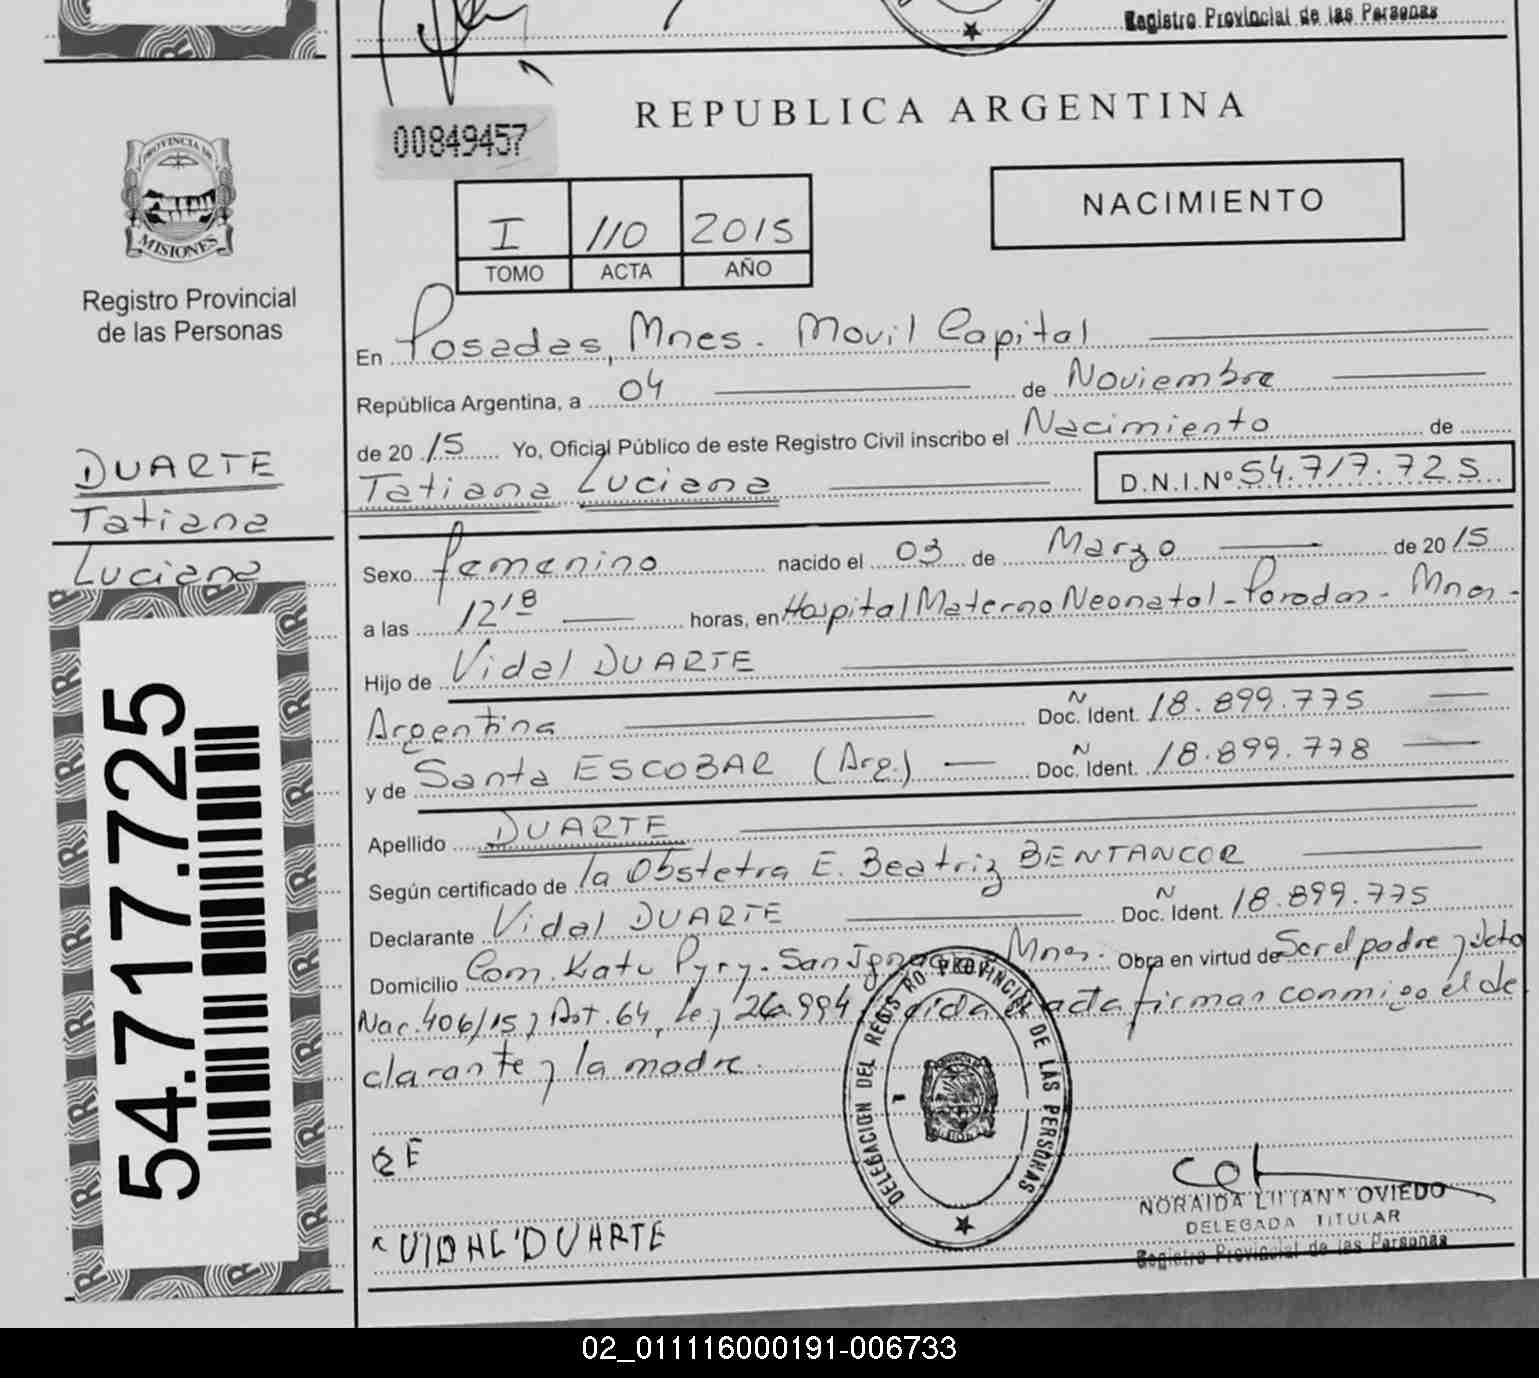 Registro Provincial de las Personas
REPUBLICA ARGENTINA
00849457
NACIMIENTO
I 110 2015
TOMO ACTA AÑO
PROVINCIA DE
MISIONES
Registro Provincial
de las Personas
DUARTE
Tatiana
Luciana
54.717.725
En Posadas, Mnes. Movil Capital
República Argentina, a 04 de Noviembre
de 20 15 Yo, Oficial Público de este Registro Civil inscribo el Nacimiento de
Tatiana Luciana D.N.I.Nº 54.717.725
Sexo femenino nacido el 03 de Marzo de 20 15
a las 12'18 horas, en Hospital Materno Neonatal - Posadas - Mnes -
Hijo de Vidal DUARTE
Argentina Doc. Ident. 18.899.775
y de Santa ESCOBAR (Arg.) Doc. Ident. 18.899.778
Apellido DUARTE
Según certificado de la Obstetra E. Beatriz BENTANCOR
Declarante Vidal DUARTE Doc. Ident. 18.899.775
Domicilio Com. Katu Pyry. San Ignacio Mnes. Obra en virtud de Ser el padre y Dcto
Nac. 406/15 y Art. 64, Ley 26.994 Leida el acta firman conmigo el de
clarante y la madre.
DELEGACION DEL REGISTRO PROVINCIAL DE LAS PERSONAS
VIDAL DUARTE
NORAIDA LILIANA OVIEDO
DELEGADA TITULAR
Registro Provincial de las Personas
02_011116000191-006733